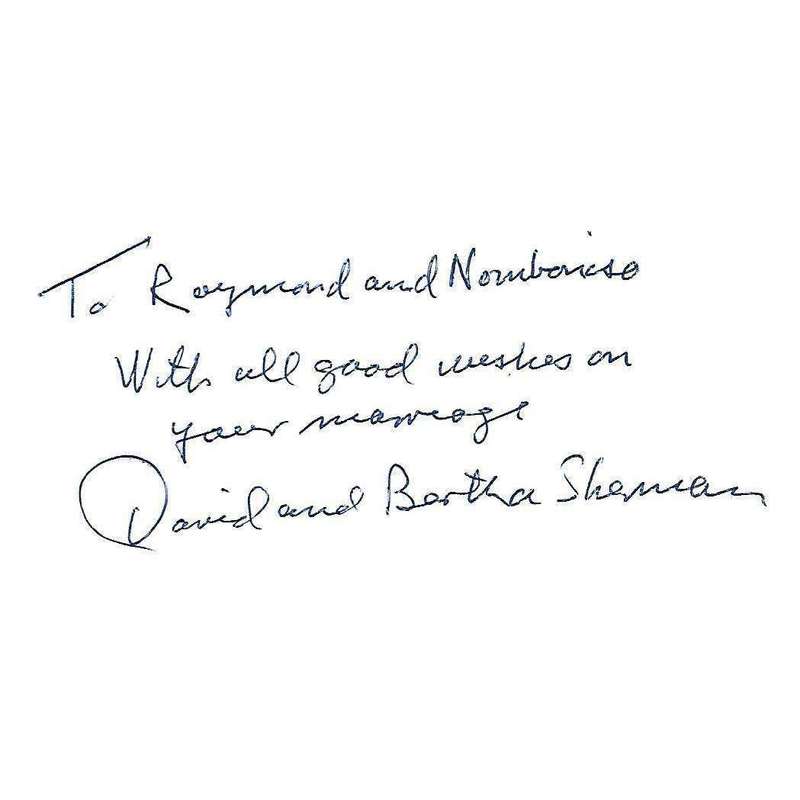 To Raymond and Nomboniso
With all good wishes on
your marriage
David and Bertha Shaman